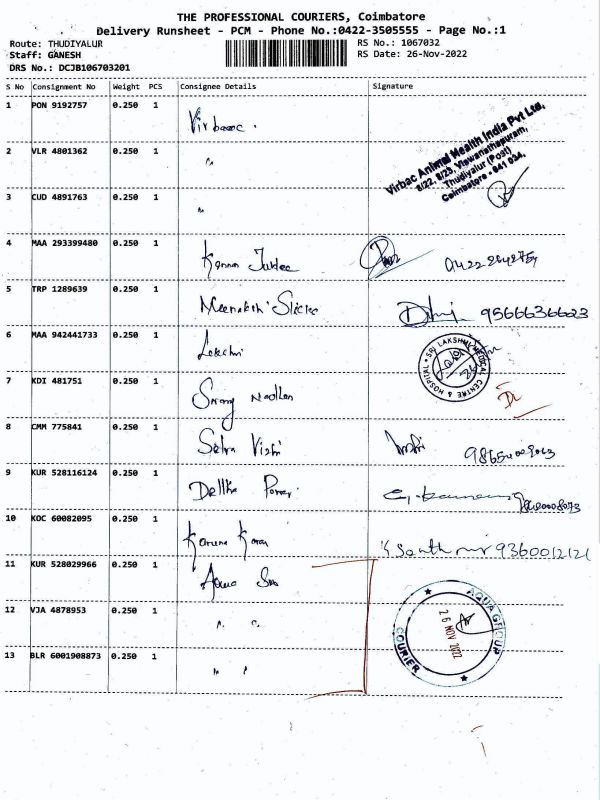 THE PROFESSIONAL COURIERS, Coimbatore
Delivery Runsheet - PCM - Phone No.:0422-3505555 - Page No.:1
Route: THUDIYALUR
Staff: GANESH
DRS No.: DCJB106703201
RS No.: 1067032
RS Date: 26-Nov-2022
S No Consignment No Weight PCS Consignee Details Signature
1 PON 9192757 0.250 1
Virbac Animal Health India Pvt Ltd,
8/22, 8/23, Viswanathapuram,
Thudiyalur (Post)
Coimbatore - 641 034.
2 VLR 4801362 0.250 1 "
3 CUD 4891763 0.250 1 "
4 MAA 293399480 0.250 1
5 TRP 1289639 0.250 1 Meenakshi 9566636623
6 MAA 942441733 0.250 1 Lakshmi
SRI LAKSHMI MEDICAL CENTRE & HOSPITAL
7 KDI 481751 0.250 1
8 CMM 775841 0.250 1
9 KUR 528116124 0.250 1
10 KOC 60082095 0.250 1 9360012121
11 KUR 528029966 0.250 1
12 VJA 4878953 0.250 1 " "
13 BLR 6001908873 0.250 1 " "
AQUA GROUP
26 NOV 2022
COURIER